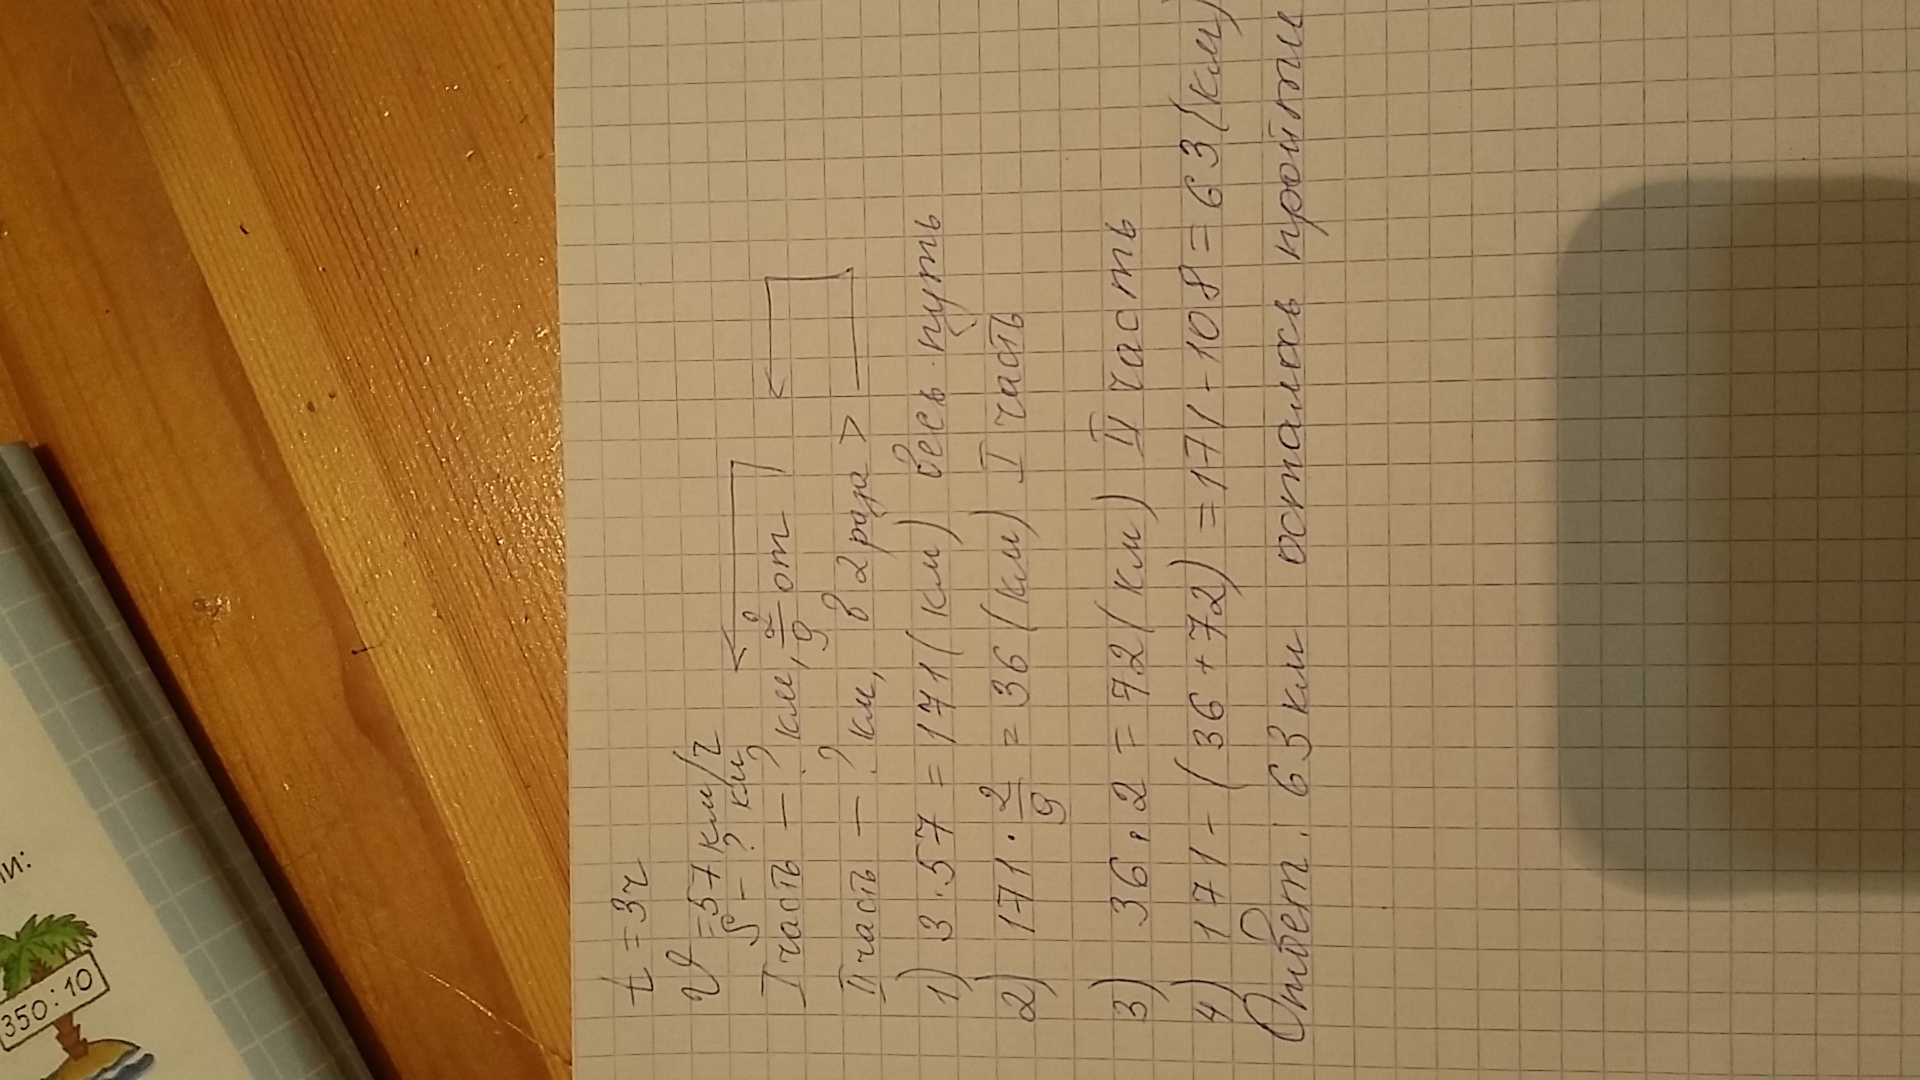 t = 3 ч
V = 57 км/ч
S - ? км
I часть - ? км, 2/9 от
II часть - ? км, в 2 раза >
1) 3 · 57 = 171 (км) весь путь
2) 171 · 2/9 = 36 (км) I часть
3) 36 · 2 = 72 (км) II часть
4) 171 - (36 + 72) = 171 - 108 = 63 (км)
Ответ: 63 км осталось пройти
и:
350:10